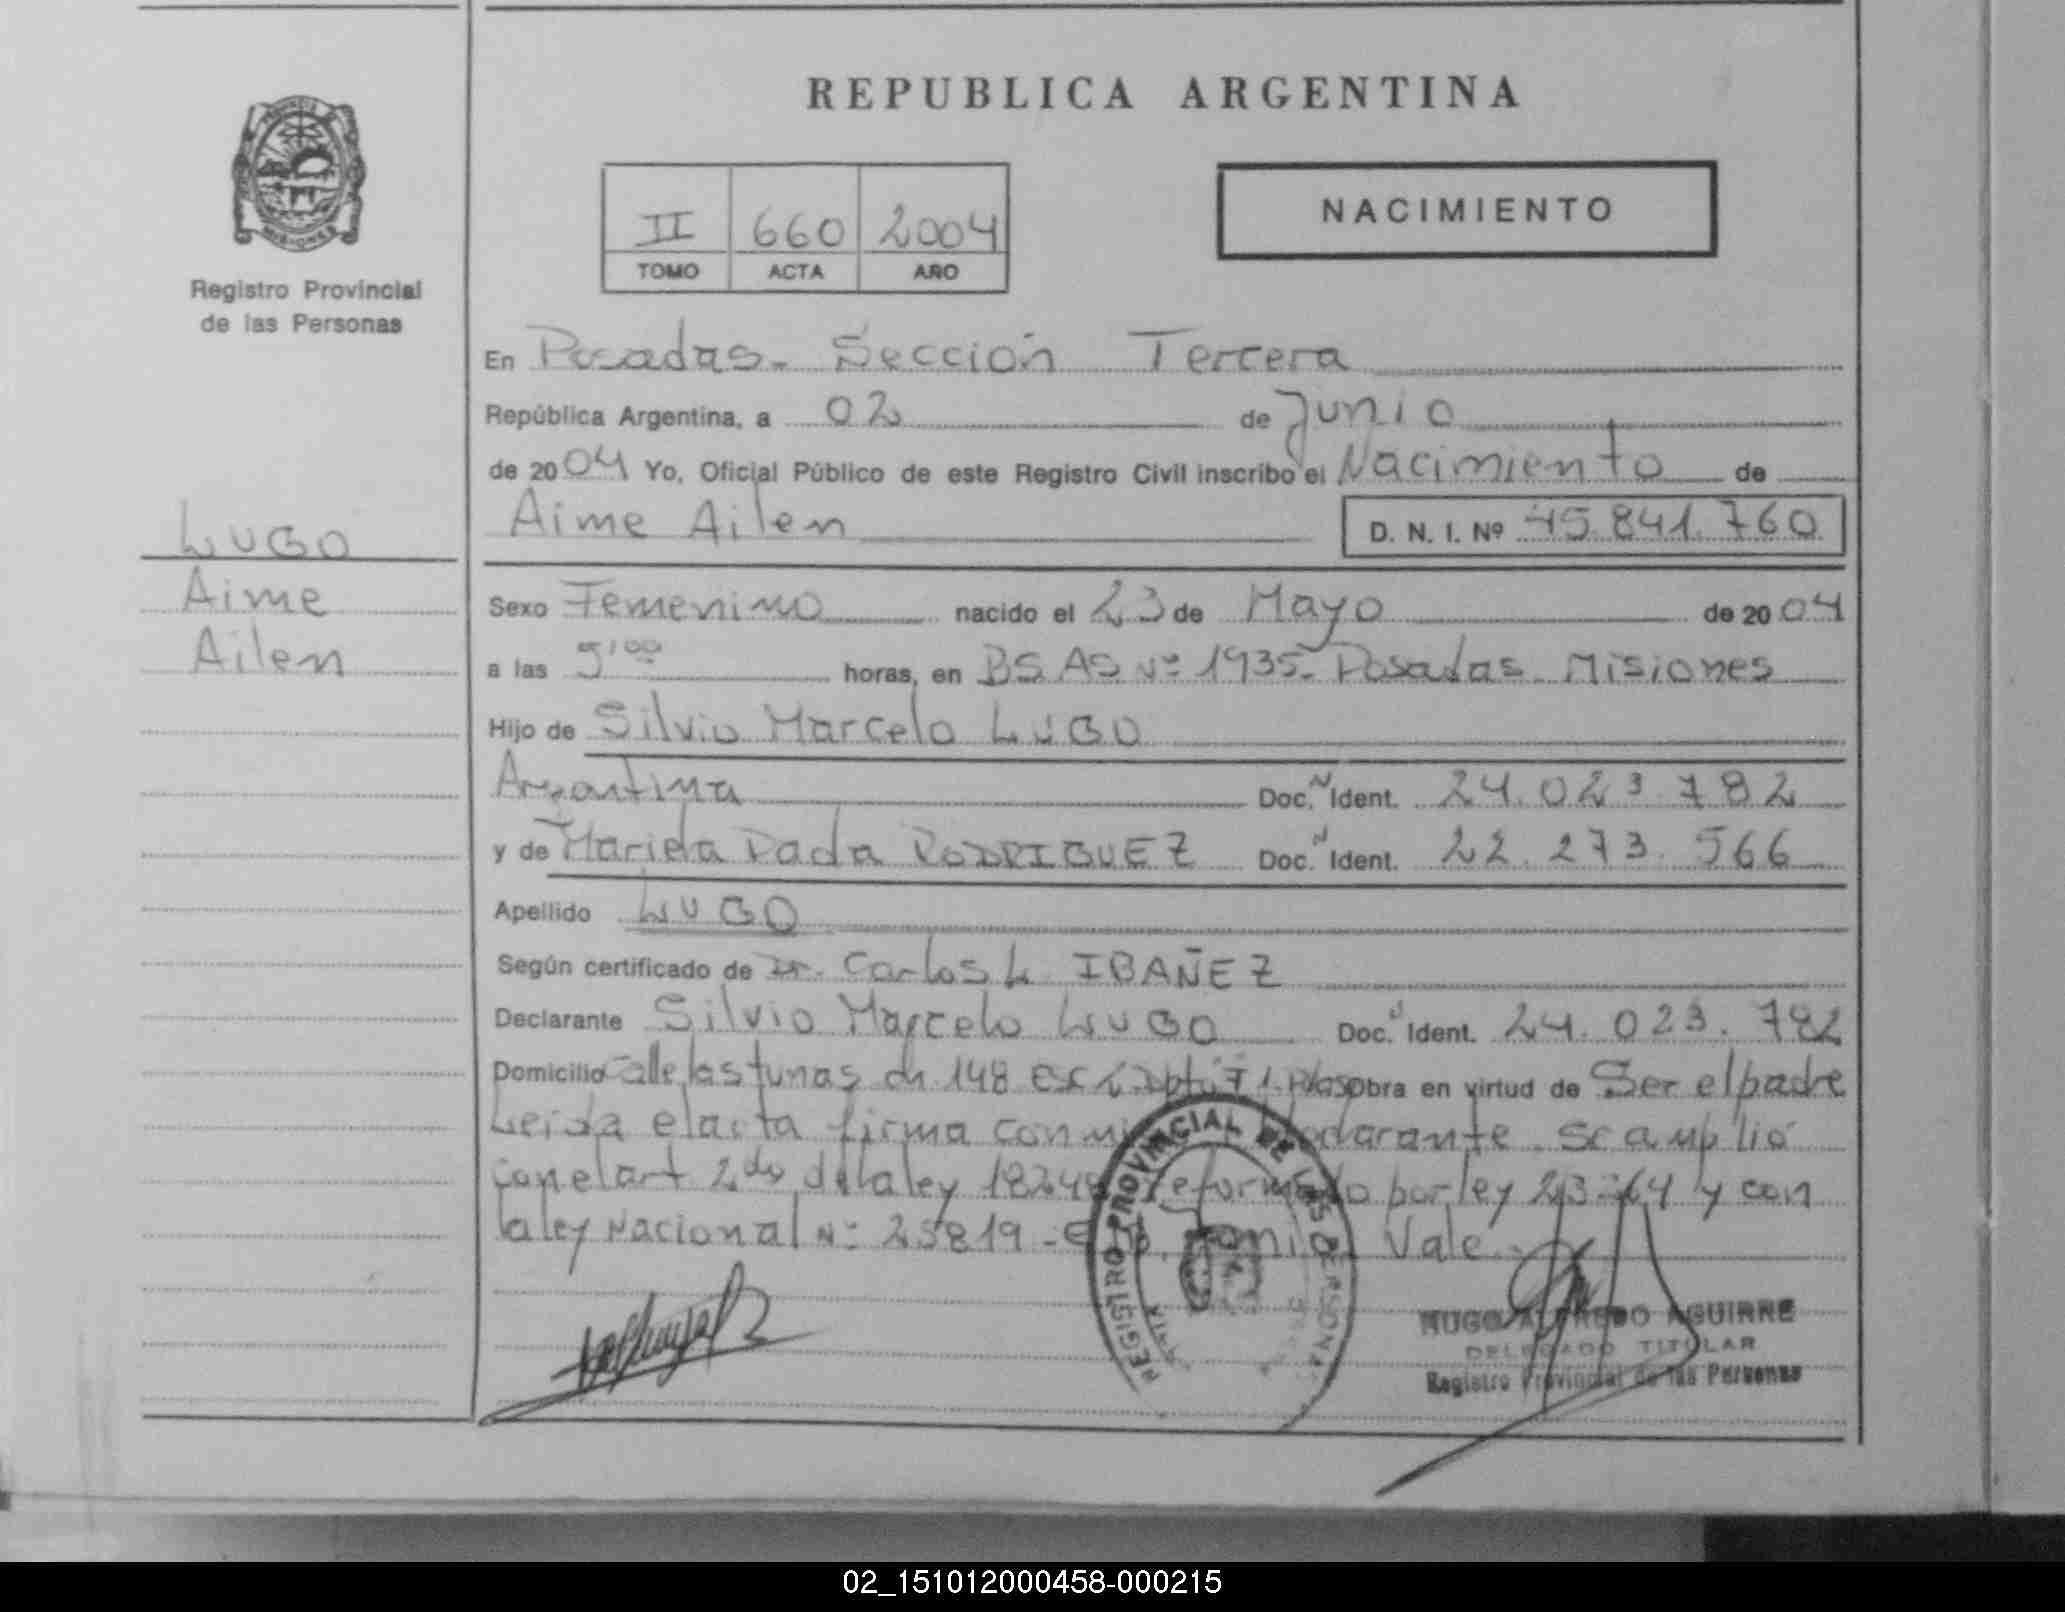 REPUBLICA ARGENTINA
II 660 2004
TOMO ACTA AÑO
NACIMIENTO
Registro Provincial
de las Personas
LUGO
Aime
Ailen
En Posadas - Sección Tercera
República Argentina, a 02 de Junio
de 2004 Yo, Oficial Público de este Registro Civil inscribo el Nacimiento de
Aime Ailen D. N. I. Nº 45.841.760
Sexo Femenino nacido el 23 de Mayo de 2004
a las horas, en BS AS Nº 1935 - Posadas - Misiones
Hijo de Silvio Marcelo LUGO
Argentina Doc. N Ident. 24.023.782
y de Mariela RODRIGUEZ Doc. N Ident. 22.273.566
Apellido LUGO
Según certificado de Dr. Carlos L. IBAÑEZ
Declarante Silvio Marcelo LUGO Doc. N Ident. 24.023.782
Domicilio Calle las tunas ch. 148 esc obra en virtud de Ser el padre
Leida el acta firma conmigo declarante. Se amplió
con el art 2do de la ley 18248 reformado por ley y con
la ley Nacional Nº 25819 - Junio Vale.
REGISTRO PROVINCIAL DE LAS PERSONAS
HUGO ALFREDO AGUIRRE
DELEGADO TITULAR
Registro Provincial de las Personas
02_151012000458-000215